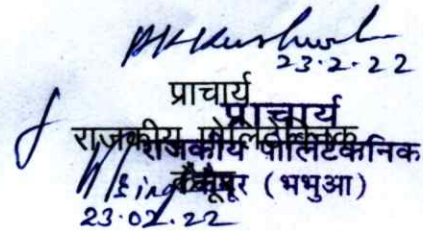 23.2.22
प्राचार्य
प्राचार्य
राजकीय पोलिटेकनिक
राजकीय पोलिटेकनिक
कैमूर
कैमूर (भभुआ)
23.02.22